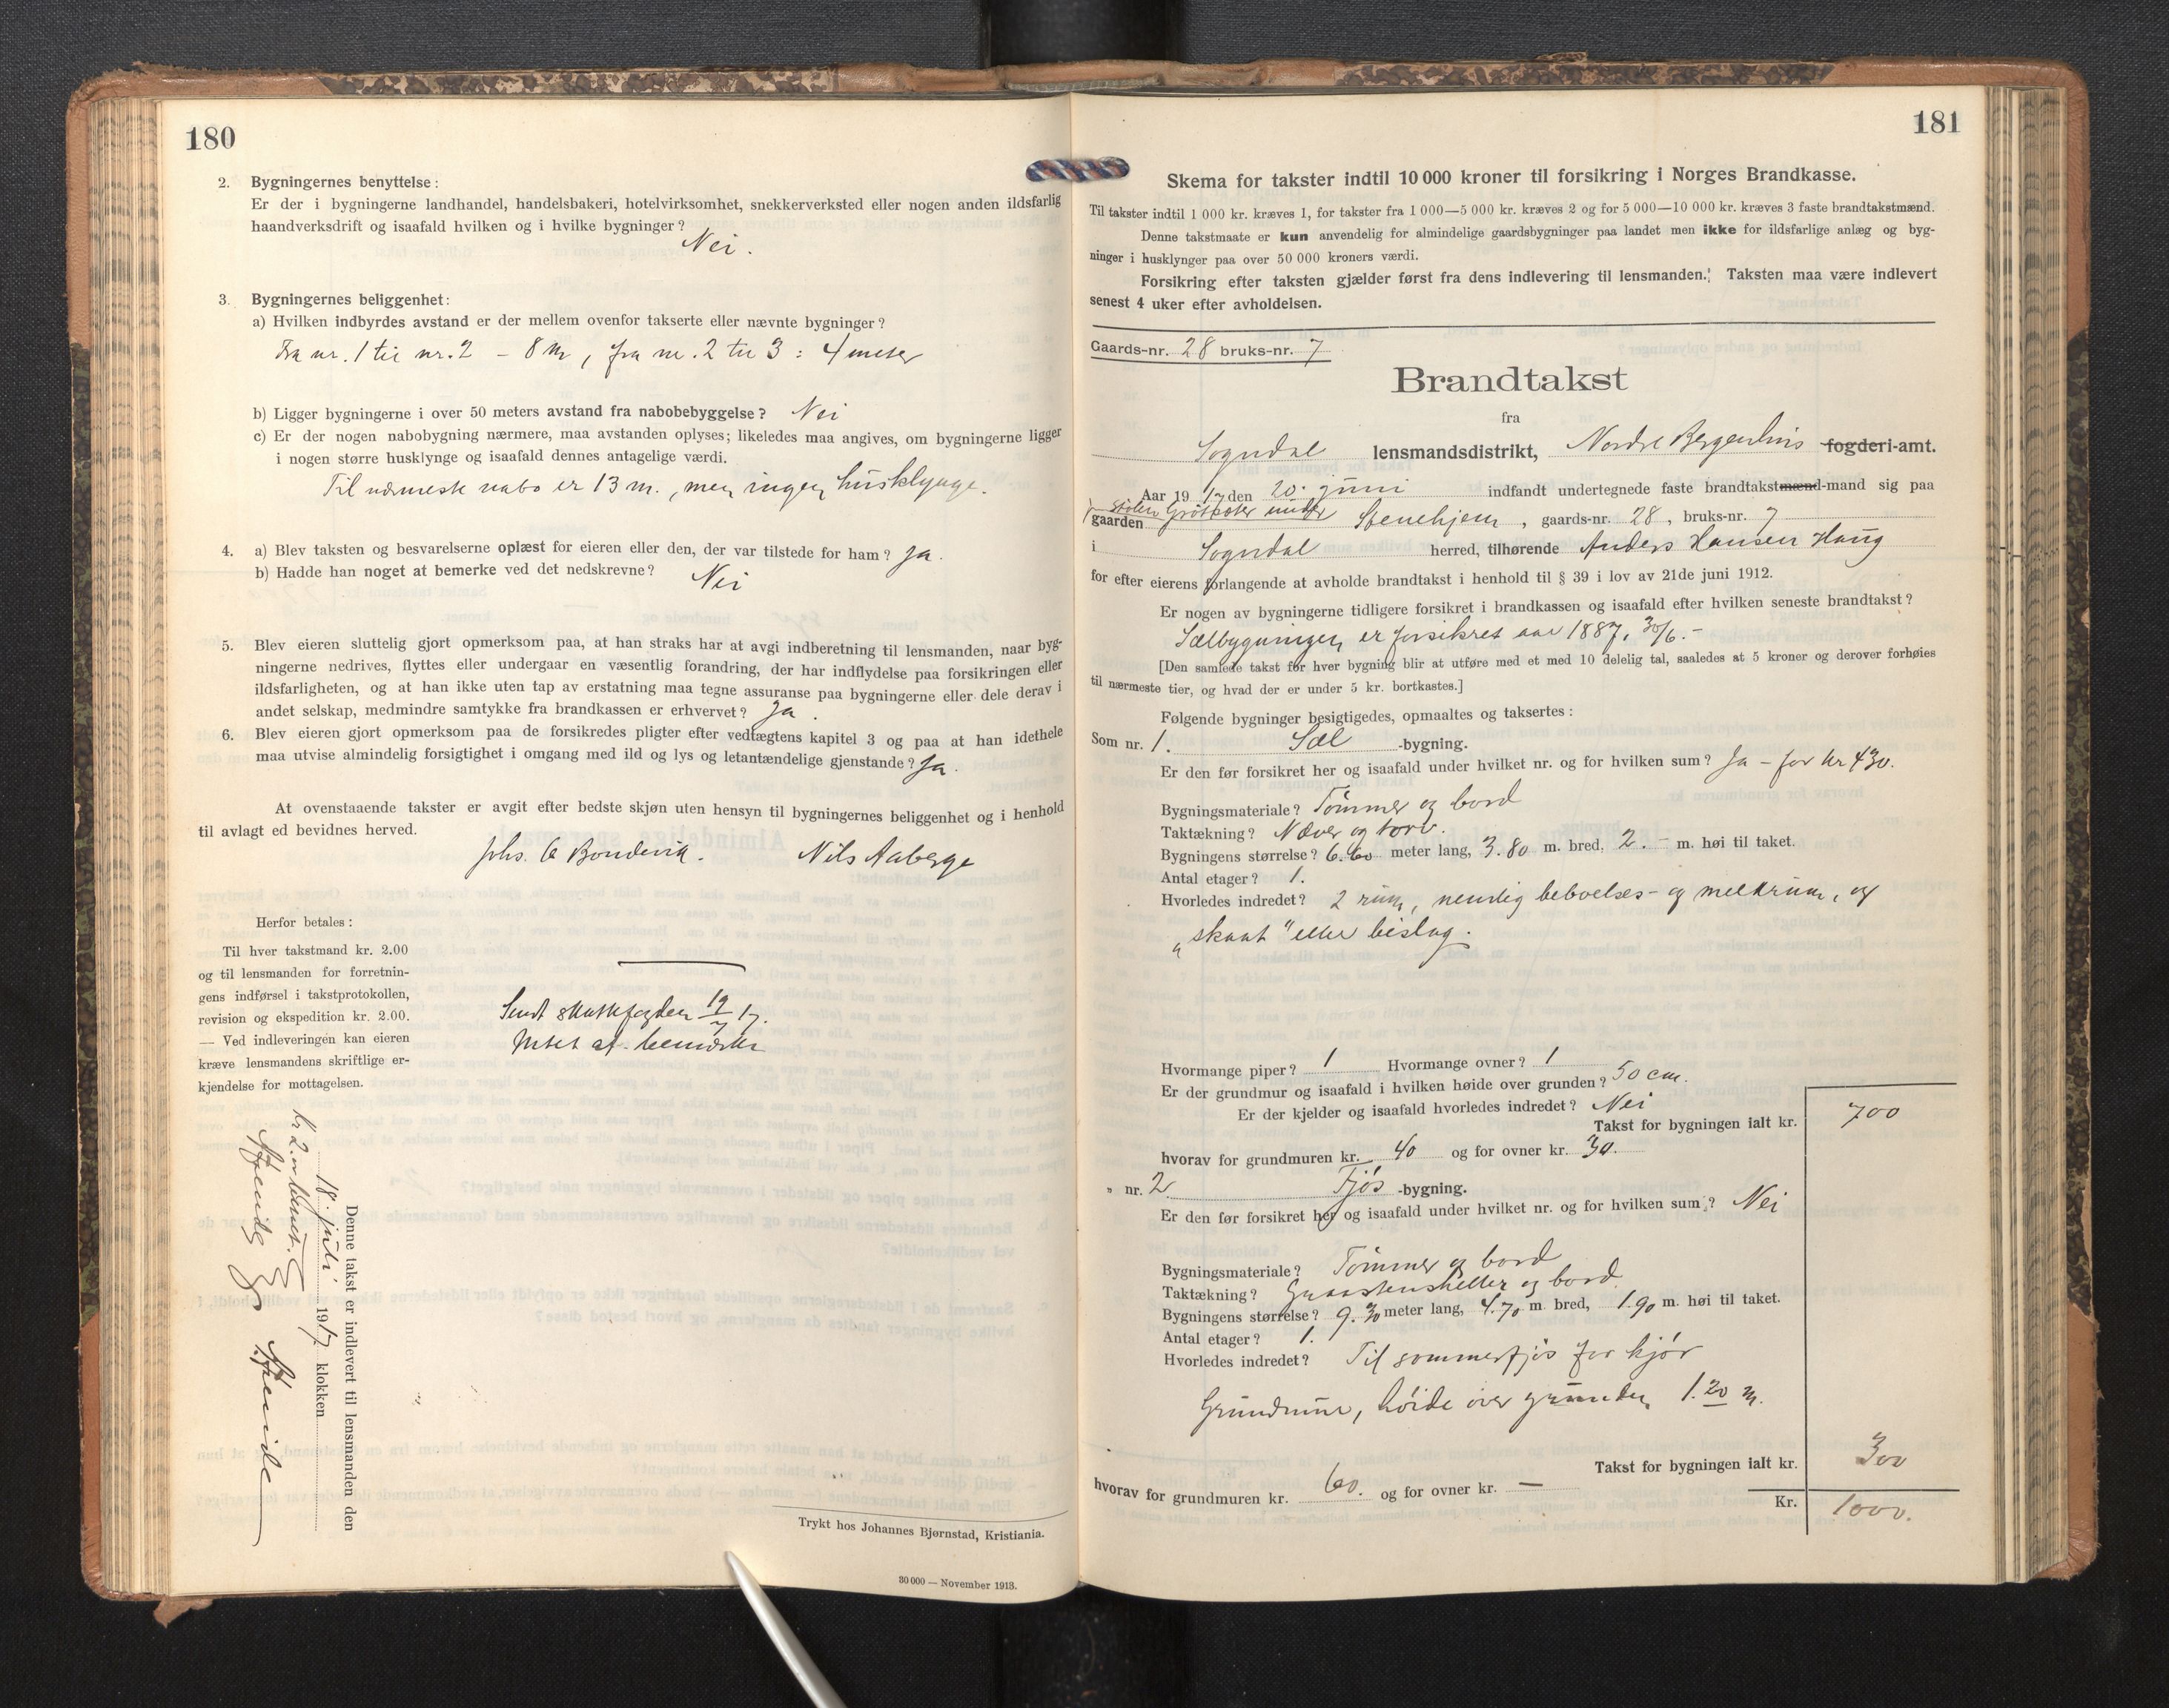 180
2. Bygningernes benyttelse:
Er der i bygningerne landhandel, handelsbakeri, hotelvirksomhet, snekkerverksted eller nogen anden ildsfarlig
haandverksdrift og isaafald hvilken og i hvilke bygninger?
Nei.
3. Bygningernes beliggenhet:
a) Hvilken indbyrdes avstand er der mellem ovenfor takserte eller nævnte bygninger?
Fra nr. 1 til nr. 2 - 8 m, fra nr. 2 til 3: 4 meter
b) Ligger bygningerne i over 50 meters avstand fra nabobebyggelse? Nei
c) Er der nogen nabobygning nærmere, maa avstanden oplyses; likeledes maa angives, om bygningerne ligger
i nogen større husklynge og isaafald dennes antagelige værdi.
Til nærmeste nabo er 13 m., men ingen husklynge.
4. a) Blev taksten og besvarelserne oplæst for eieren eller den, der var tilstede for ham? Ja.
b) Hadde han noget at bemerke ved det nedskrevne? Nei
5. Blev eieren sluttelig gjort opmerksom paa, at han straks har at avgi indberetning til lensmanden, naar byg-
ningerne nedrives, flyttes eller undergaar en væsentlig forandring, der har indflydelse paa forsikringen eller
ildsfarligheten, og at han ikke uten tap av erstatning maa tegne assuranse paa bygningerne eller dele derav i
andet selskap, medmindre samtykke fra brandkassen er erhvervet? Ja.
6. Blev eieren gjort opmerksom paa de forsikredes pligter efter vedtægtens kapitel 3 og paa at han idethele
maa utvise almindelig forsigtighet i omgang med ild og lys og letantændelige gjenstande? Ja.
At ovenstaaende takster er avgit efter bedste skjøn uten hensyn til bygningernes beliggenhet og i henhold
til avlagt ed bevidnes herved.
Johs. O Bondevik. Nils Aaberge
Herfor betales:
Til hver takstmand kr. 2.00
og til lensmanden for forretnin-
gens indførsel i takstprotokollen,
revision og ekspedition kr. 2.00.
— Ved indleveringen kan eieren
kræve lensmandens skriftlige er-
kjendelse for mottagelsen.
Sendt skattefogden 19/7 17.
Intet at bemærke
Denne takst er indlevert til lensmanden den
18. juli 1917 klokken
kr 2.00
Trykt hos Johannes Bjørnstad, Kristiania.
30 000 — November 1913.
181
Skema for takster indtil 10 000 kroner til forsikring i Norges Brandkasse.
Til takster indtil 1 000 kr. kræves 1, for takster fra 1 000—5 000 kr. kræves 2 og for 5 000—10 000 kr. kræves 3 faste brandtakstmænd.
Denne takstmaate er kun anvendelig for almindelige gaardsbygninger paa landet men ikke for ildsfarlige anlæg og byg-
ninger i husklynger paa over 50 000 kroners værdi.
Forsikring efter taksten gjælder først fra dens indlevering til lensmanden. Taksten maa være indlevert
senest 4 uker efter avholdelsen.
Gaards-nr. 28 bruks-nr. 7
Brandtakst
fra
Sogndal lensmandsdistrikt, Nordre Bergenhus fogderi-amt.
Aar 1917 den 20. juni indfandt undertegnede faste brandtakstmænd-mand sig paa
stølen under
gaarden Stenehjem, gaards-nr. 28, bruks-nr. 7
i Sogndal herred, tilhørende Anders Hansen Haug
for efter eierens forlangende at avholde brandtakst i henhold til § 39 i lov av 21de juni 1912.
Er nogen av bygningerne tidligere forsikret i brandkassen og isaafald efter hvilken seneste brandtakst?
Sælbygningen er forsikret aar 1887, 30/6.-
[Den samlede takst for hver bygning blir at utføre med et med 10 delelig tal, saaledes at 5 kroner og derover forhøies
til nærmeste tier, og hvad der er under 5 kr. bortkastes.]
Følgende bygninger besigtigedes, opmaaltes og taksertes:
Som nr. 1. Sæl -bygning.
Er den før forsikret her og isaafald under hvilket nr. og for hvilken sum? Ja - for kr 430.
Bygningsmateriale? Tømmer og bord
Taktækning? Næver og torv.
Bygningens størrelse? 6.60 meter lang, 3.80 m. bred, 2.- m. høi til taket.
Antal etager? 1.
Hvorledes indredet? 2 rum, nemlig beboelses- og melkrum, og
„skaat" eller bislag.
Hvormange piper? 1 Hvormange ovner? 1
Er der grundmur og isaafald i hvilken høide over grunden? 50 cm.
Er der kjelder og isaafald hvorledes indredet? Nei
Takst for bygningen ialt kr. 700
hvorav for grundmuren kr. 40 og for ovner kr. 30.
„ nr. 2 Fjøs -bygning.
Er den før forsikret her og isaafald under hvilket nr. og for hvilken sum? Nei
Bygningsmateriale? Tømmer og bord
Taktækning? Graastensheller og bord.
Bygningens størrelse? 9.30 meter lang, 4.70 m. bred, 1.90 m. høi til taket.
Antal etager? 1.
Hvorledes indredet? Til sommerfjøs for kjør
Grundmur, høide over grunden 1.20 m.
Takst for bygningen ialt kr. 300
hvorav for grundmuren kr. 60. og for ovner kr. —
Kr. 1000.